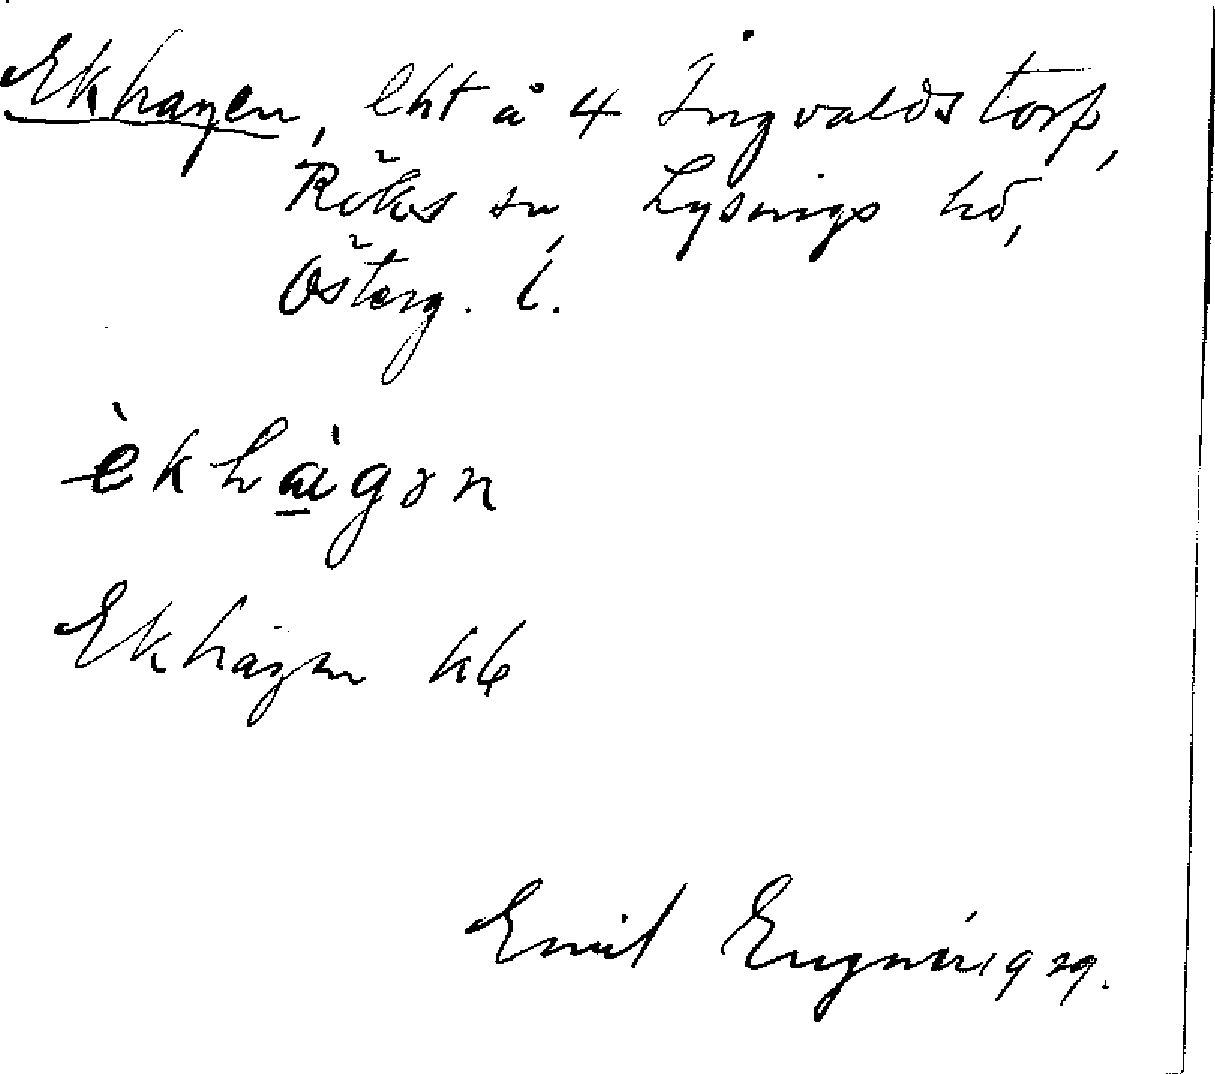 Ekhagen, lht å 4 Ingvaldstorp,
Röks sn, Lysings hd,
Österg. l.
èkhàgən
Ekhagen kb
Emil Engnér 1929.